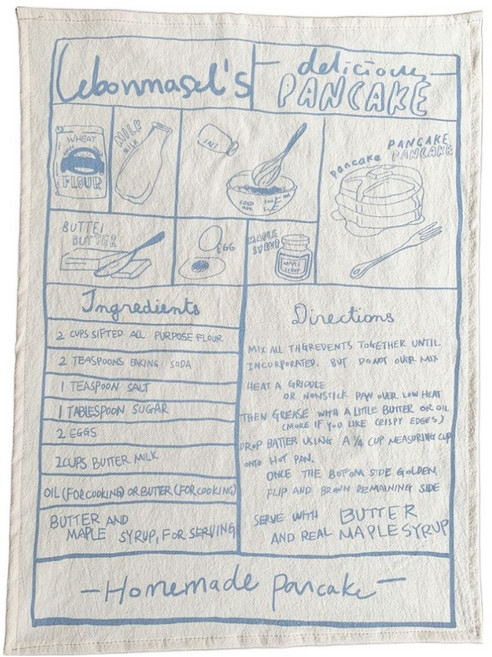 Lebonmasel's
delicious
PANCAKE
WHEAT
FLOUR
MILK
MILK
PANCAKE
pancake PANCAKE
BUTTER
BUTTER
EGG
MAPLE
SYRUP
MAPLE
SYRUP
Ingredients
2 CUPS SIFTED ALL PURPOSE FLOUR
2 TEASPOONS BAKING SODA
1 TEASPOON SALT
1 TABLESPOON SUGAR
2 EGGS
2 CUPS BUTTER MILK
OIL (FOR COOKING) OR BUTTER (FOR COOKING)
BUTTER AND
MAPLE SYRUP, FOR SERVING
Directions
MIX ALL INGREDIENTS TOGETHER UNTIL
INCORPORATED. BUT DO NOT OVER MIX
HEAT A GRIDDLE
OR NONSTICK PAN OVER LOW HEAT
THEN GREASE WITH A LITTLE BUTTER OR OIL
(MORE IF YOU LIKE CRISPY EDGES)
DROP BATTER USING A 1/4 CUP MEASURING CUP
ONTO HOT PAN.
ONCE THE BOTTOM SIDE GOLDEN,
FLIP AND BROWN REMAINING SIDE
SERVE WITH BUTTER
AND REAL MAPLE SYRUP
-Homemade pancake-